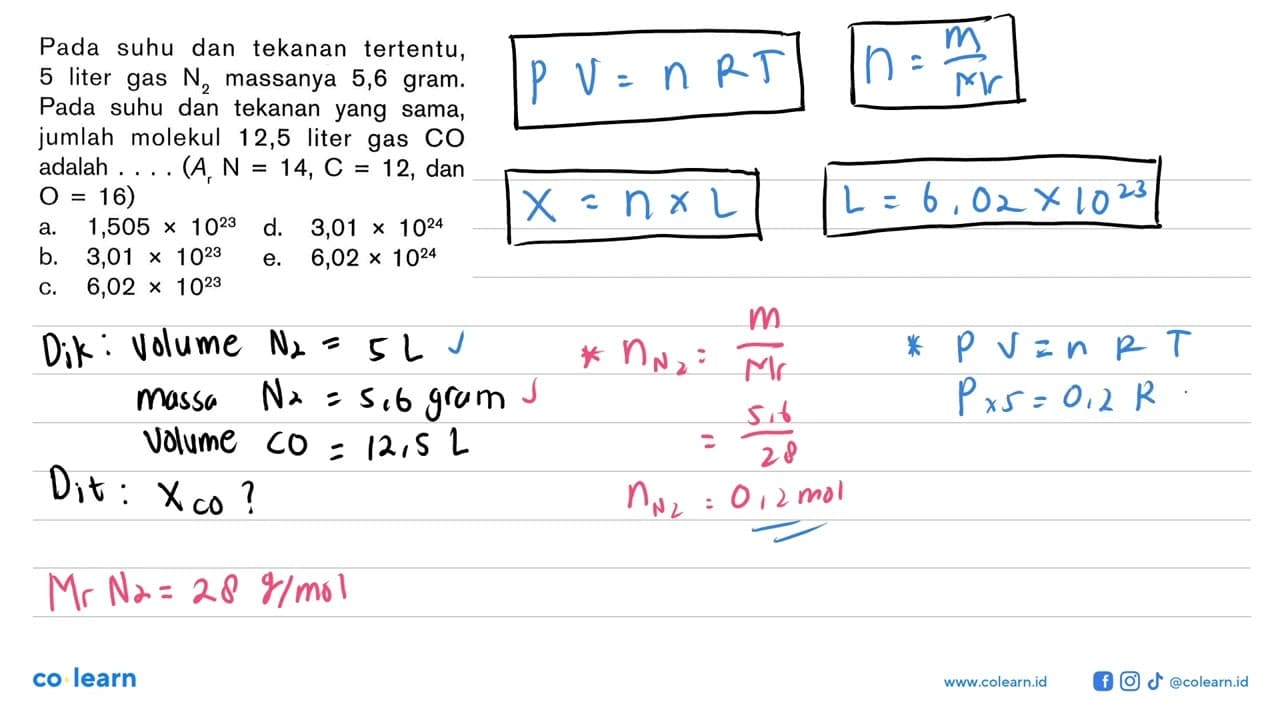 Pada suhu dan tekanan tertentu,
5 liter gas N₂ massanya 5,6 gram.
Pada suhu dan tekanan yang sama,
jumlah molekul 12,5 liter gas CO
adalah . . . . (Aᵣ N = 14, C = 12, dan
O = 16)
a. 1,505 × 10²³ d. 3,01 × 10²⁴
b. 3,01 × 10²³ e. 6,02 × 10²⁴
c. 6,02 × 10²³
P V = n R T
n = m/Mr
X = n × L
L = 6,02 × 10²³
Dik : Volume N₂ = 5 L ✓
massa N₂ = 5,6 gram ✓
Volume CO = 12,5 L
Dit : X CO ?
Mr N₂ = 28 g/mol
* n N₂ = m/Mr
= 5,6/28
n N₂ = 0,2 mol
* P V = n R T
P × 5 = 0,2 R
co learn
www.colearn.id
@colearn.id